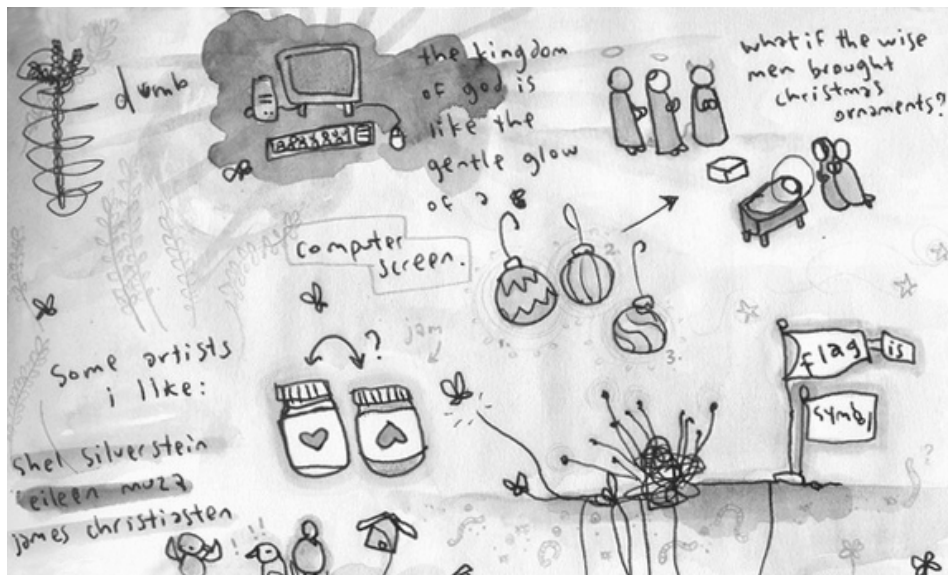 dumb
the kingdom
of god is
like the
gentle glow
of a
computer
screen.
what if the wise
men brought
christmas
ornaments?
2.
3.
jam
?
some artists
i like:
shel silverstein
eileen muza
james christiasten
!!
flag
is
symbl
?